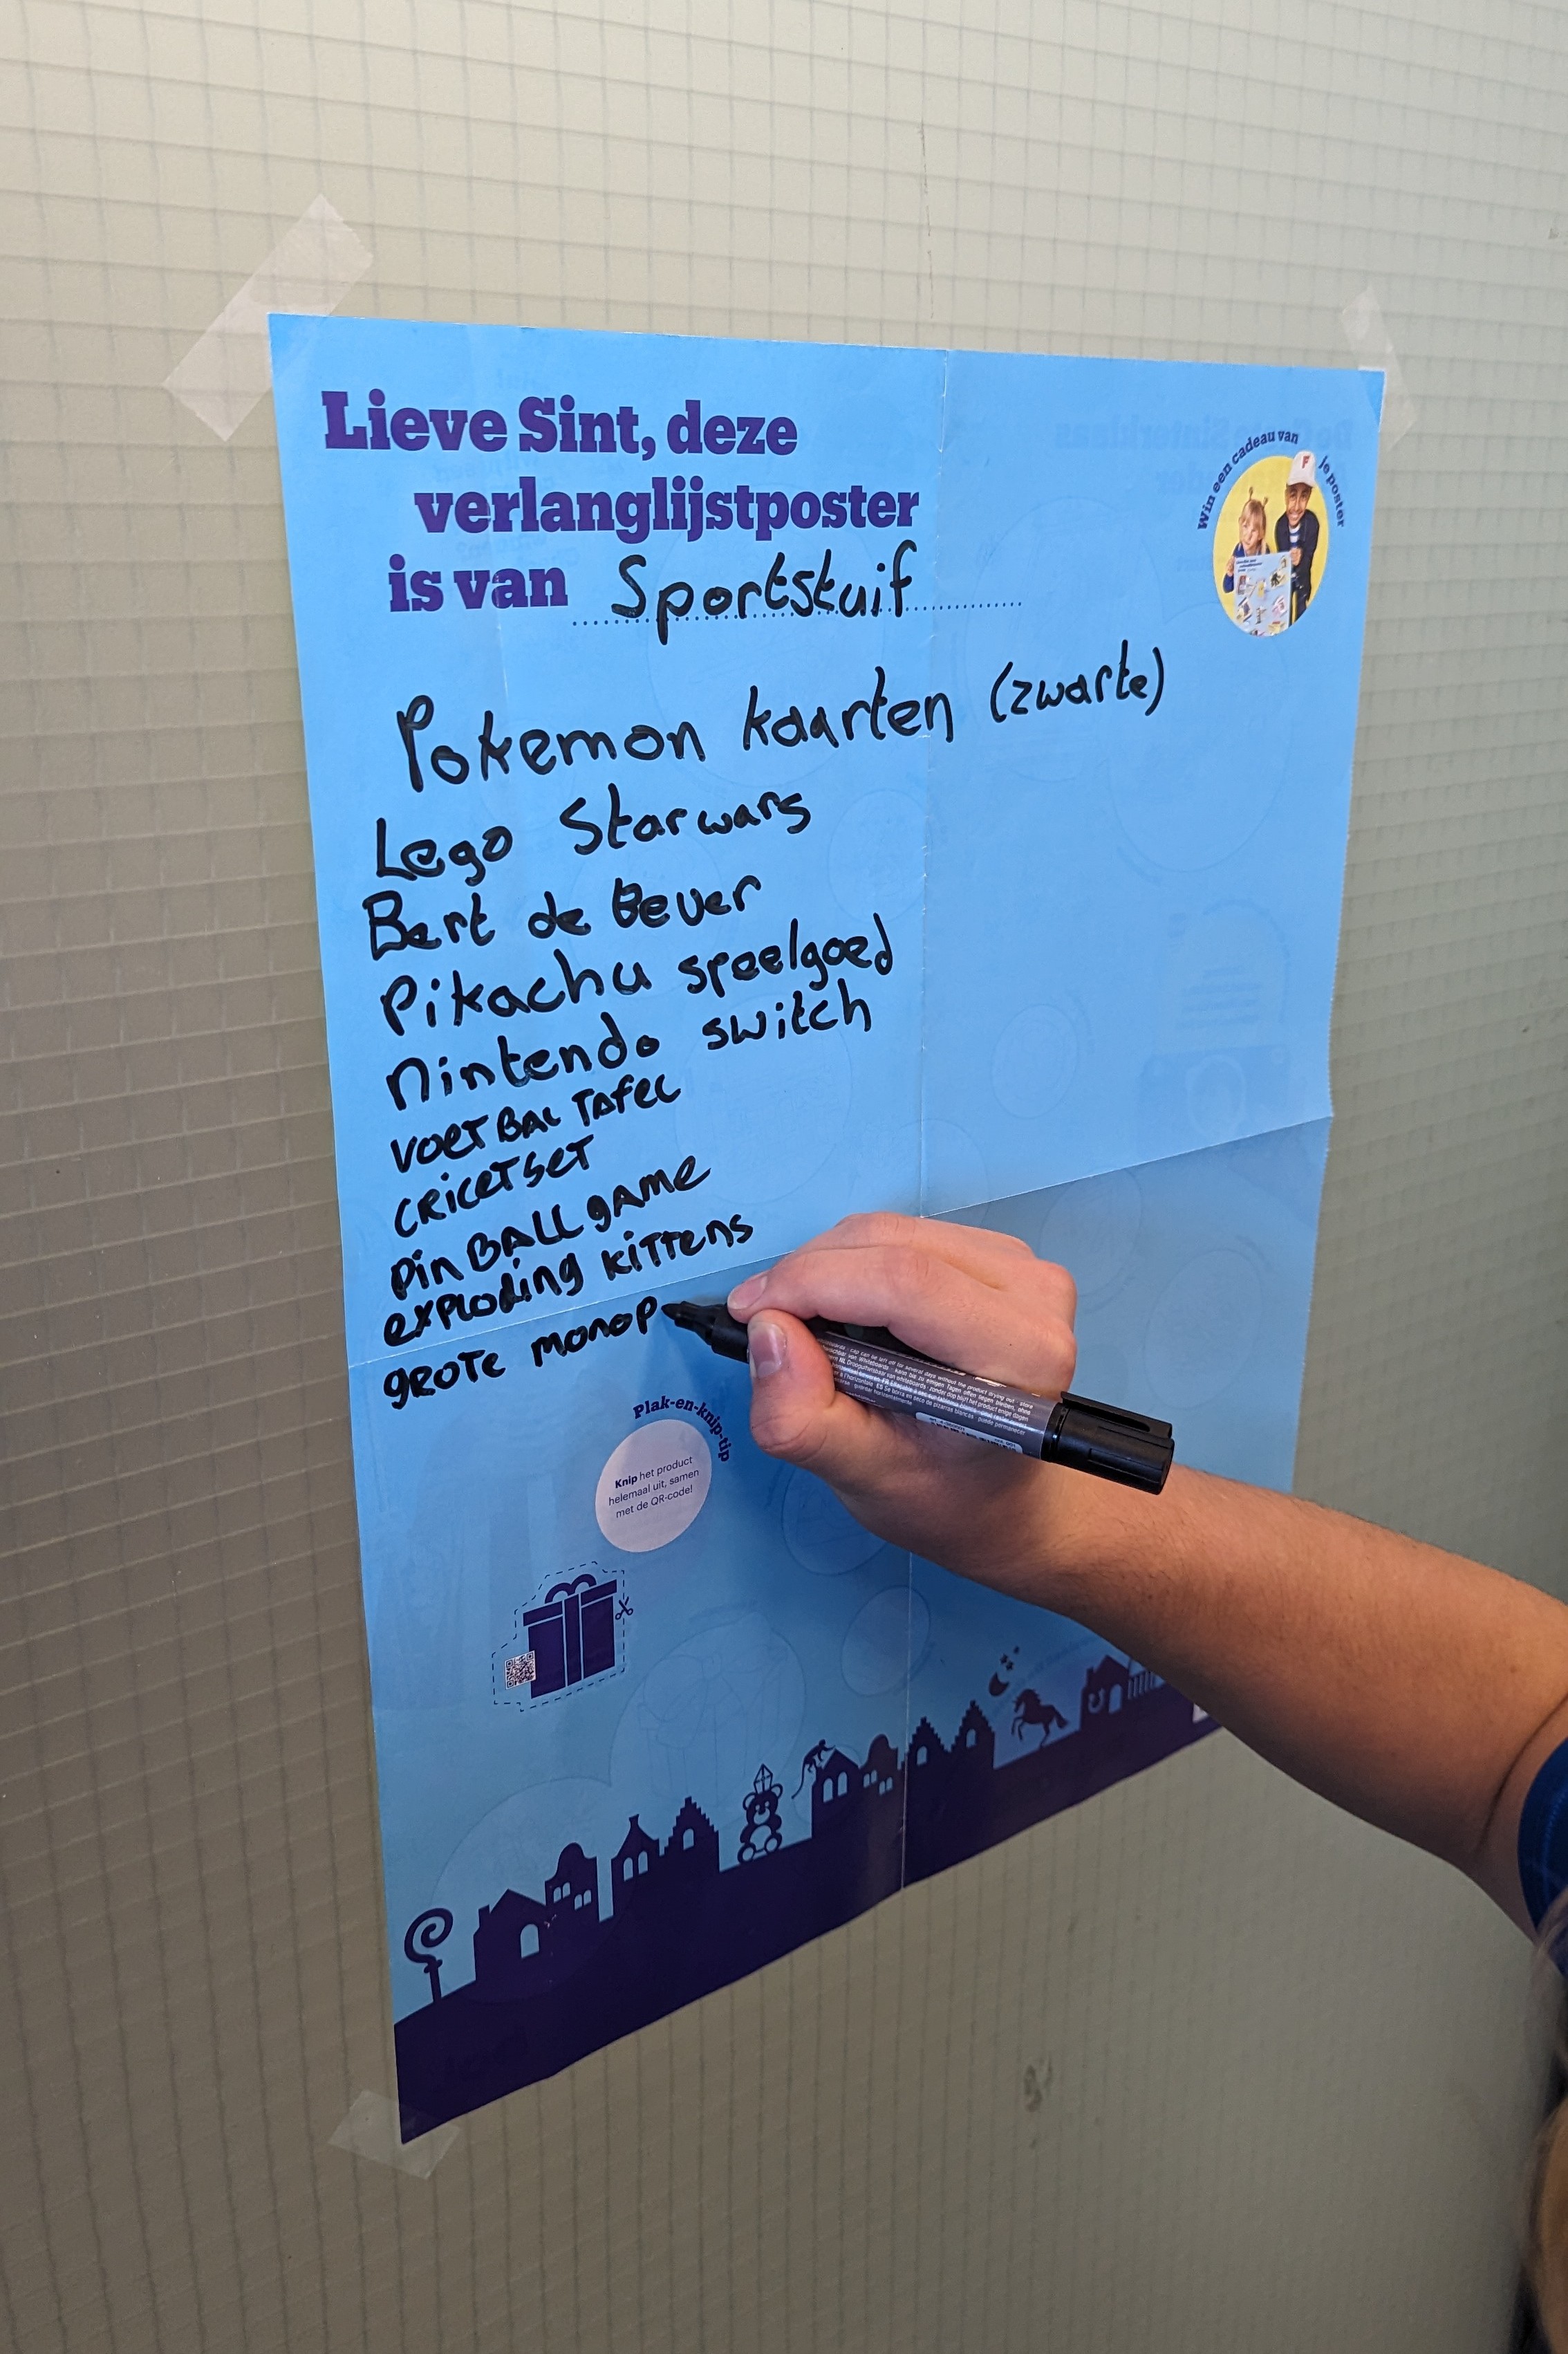 Lieve Sint, deze
verlanglijstposter
is van Sportstuif
Win een cadeau van je poster
F
Pokemon kaarten (zwarte)
Lego Starwars
Bert de Bever
Pikachu speelgoed
Nintendo switch
VOETBAL TAFEL
CRICETSET
PinBALL gAME
exploding kittens
gROTE monop
Plak-en-knip-tip
Knip het product
helemaal uit, samen
met de QR-code!